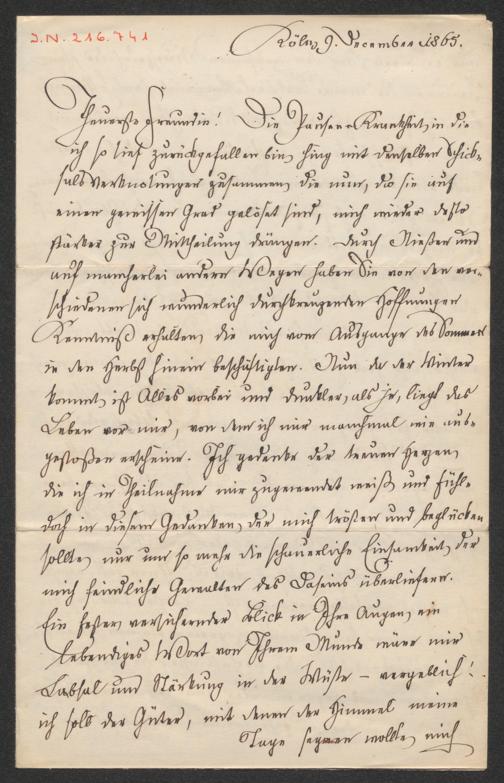 J.N. 216.741
Köln, 9. December 1865.
Theuerste Freundin! Die Pausen-Krankheit, in die
ich so tief zurückgefallen bin, hing mit denselben Schick-
salsverknotungen zusammen, die nun, da sie auf
einen gewissen Grad gelöset sind, mich wieder desto
stärker zur Mittheilung drängen. Durch Nießen und
auf mancherlei andern Wegen haben Sie von den ver-
schiedenen sich wunderlich durchkreuzenden Hoffnungen
Kenntniß erhalten, die mich vom Ausgange des Sommers
in den Herbst hinein beschäftigten. Nun da der Winter
kommt, ist Alles vorbei und dunkler, als je, liegt das
Leben vor mir, von dem ich mir manchmal wie aus-
gestoßen erscheine. Ich gedenke der treuen Herzen,
die ich in Theilnahme mir zugewendet weiß, und fühle
doch in diesem Gedanken, der mich trösten und beglücken
sollte, nur um so mehr die schauerliche Einsamkeit, der
mich feindliche Gewalten des Daseins überliefern.
Ein fester, versichernder Blick in Ihre Augen, ein
lebendiges Wort von Ihrem Munde wäre mir
Labsal und Stärkung in der Wüste – vergeblich!
ich soll der Güter, mit denen der Himmel meine
Tage segnen wollte, mich